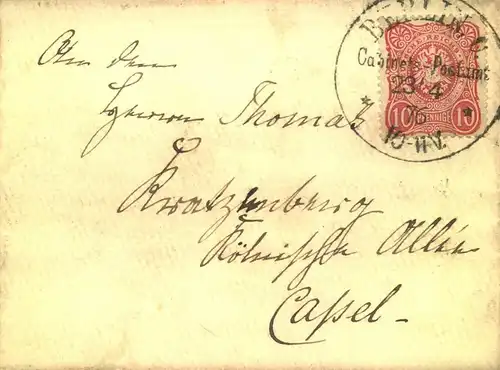 An den
Herrn Thomas
Kratzenberg
Kölnische Allée
Cassel -
BERLIN C
Cabinets-Postamt
23 4
76
10-11 N.
10 PFENNIG 10